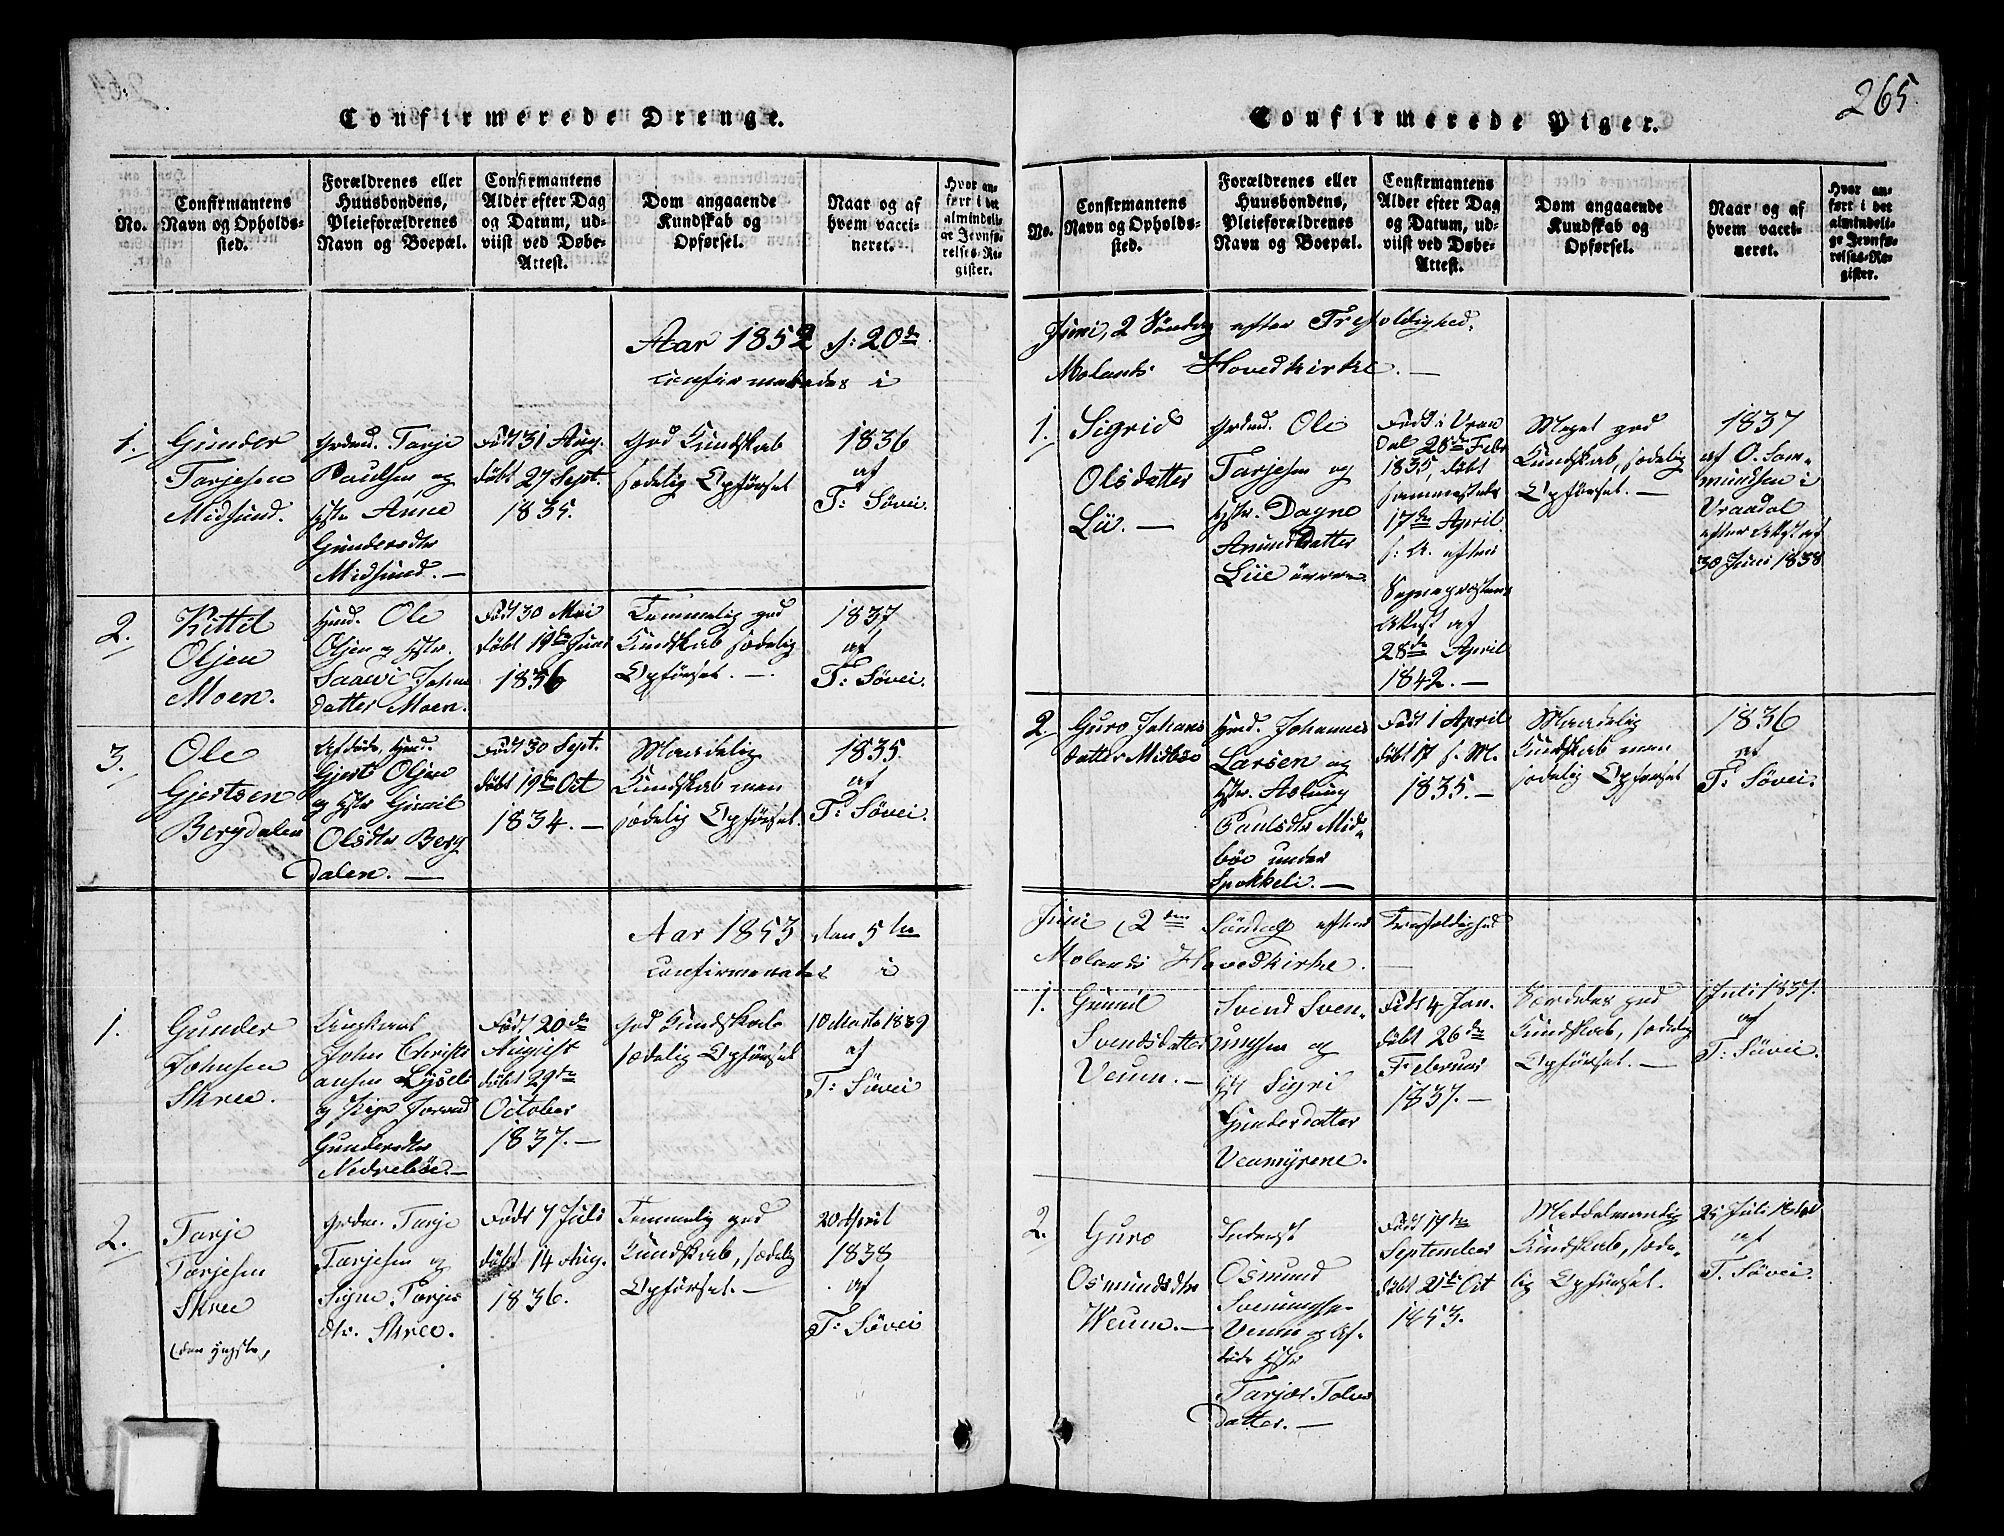 265
Confirmerede Drenge.
No.
Confirmantens
Navn og Opholds-
sted.
Forældrenes eller
Huusbondens,
Pleieforældrenes
Navn og Boepæl.
Confirmantens
Alder efter Dag
og Datum, ud-
viist ved Døbe-
Attest.
Dom angaaende
Kundskab og
Opførsel.
Naar og af
hvem vacci-
neret.
Hvor an-
ført i det
almindeli-
ge Jevnfø-
relses-Re-
gister.
Aar 1852 d: 20de
confirmeredes i
1.
Gunder
Tarjesen
Midsund.
Grdmd. Tarje
Paulsen og
Hstr. Anne
Gundersdtr
Midsund. —
Født 31 Aug.
døbt 27 Sept.
1835.
God Kundskab
sædelig Opførsel
1836
af
T: Søvei.
2.
Kittil
Olsen
Moen.
Hmd. Ole
Olsen og Hstr.
Saawi Johns
datter Moen.
Født 30 Mai
døbt 19de Juni
1836
Temmelig god
Kundskab sædelig
Opførsel. —
1837
af
T: Søvei.
3.
Ole
Gjertsen
Bergdalen
Afdøde Hmd.
Gjert Olsen
og Hstr Gunil
Olsdtr Berg
dalen. —
Født 30 Sept.
døbt 19de Oct
1834. —
Maadelig
Kundskab men
sædelig Opførsel.
1835.
af
T: Søvei.
Aar 1853 den 5te
confirmeredes i
1.
Gunder
Johnsen
Skree.
Ungkarl
John Christi
ansen
og Pige
Gundersdtr
Nedreböe. —
Født 20de
August
døbt 29de
October
1837. —
God Kundskab
sædelig Opførsel
10 Marts 1839
af
T: Søvei
2.
Tarje
Tarjesen
Skree
(den yngste)
Grdm. Tarje
Tarjesen og
Signe Tarjes
dtr. Skree.
Født 7 Juli
døbt 14 Aug.
1836.
Temmelig god
Kundskab, sædelig
Opførsel. —
20 April
1838
af
T: Søvei
Confirmerede Piger.
No.
Confirmantens
Navn og Opholds-
sted.
Forældrenes eller
Huusbondens,
Pleieforældrenes
Navn og Boepæl.
Confirmantens
Alder efter Dag
og Datum, ud-
viist ved Døbe-
Attest.
Dom angaaende
Kundskab og
Opførsel.
Naar og af
hvem vacci-
neret.
Hvor an-
ført i det
almindeli-
ge Jevnfø-
relses-Re-
gister.
Juni, 2 Søndag efter Trefoldighed.
Molands Hovedkirke. —
1.
Sigrid
Olsdatter
Lii. —
Grdmd. Ole
Tarjesen og
Hstr. Dagne
Anundsdatter
Liie övre
Født i Vraa
dal 28de Febr
1835, døbt
sammesteds
17de April
s: A. efter
Sognepræstens
Attest af
28de April
1842. —
Meget god
Kundskab, sædelig
Opførsel. —
1837
af O. Sam-
mundsen i
Vraadal
efter Attest af
30 Juni 1838
2.
Guro Johans
datter Midböe
Hmd. Johannes
Larsen og
Hstr. Aslaug
Paulsdtr Mid-
böe under
Spokkeli. —
Født 1 April
døbt 17 s. M.
1835. —
Maadelig
Kundskab men
sædelig Opførsel
1836
af
T: Søvei.
Juni (2den Søndag efter Trefoldighed
Molands Hovedkirke. —
1.
Gunil
Svendsdatter
Veum. —
Svend Sven-
ungsen og
Sigri
Gundersdatter
Veumyrene.
Født 4 Jan.
døbt 26de
Februar
1837. —
Særdeles god
Kundskab, sædelig
Opførsel. —
1 Juli 1837.
af
T: Søvei.
2.
Guro
Osmundsdtr
Weum. —
Inderst
Osmund
Svenungsen
Veum og af-
døde Hstr
Tarjer Tolvs
datter. —
Født 17de
September
døbt 21de Oct
1853.
Middelmaadig
Kundskab, sæde-
lig Opførsel.
25 Juli
af
T. Søvei.